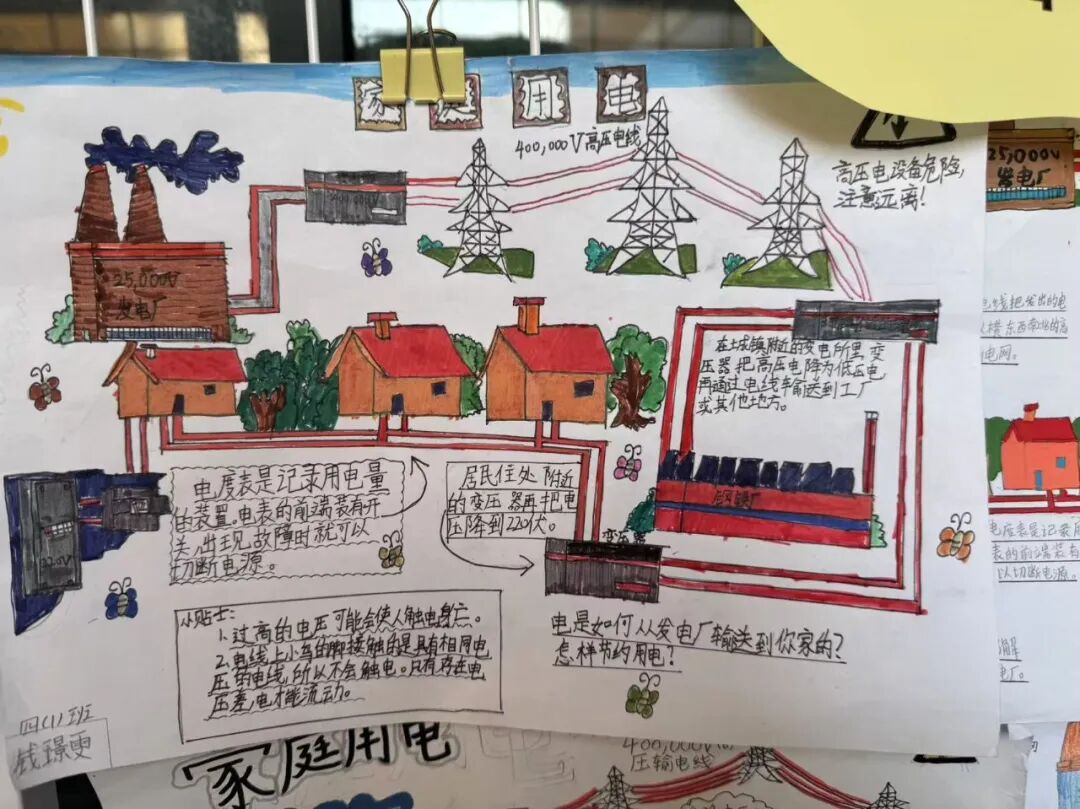 家庭用电
400,000V高压电线
高压电设备危险,
注意远离!
25,000V
发电厂
400,000V
在城镇附近的变电所里,变
压器把高压电降为低压电
再通过电线输送到工厂
或其他地方。
钢铁厂
电度表是记录用电量
的装置。电表的前端装有开
关,出现故障时就可以
切断电源。
居民住处附近
的变压器再把电
压降到220伏。
变压器
220V
小贴士:
1.过高的电压可能会使人触电身亡。
2.电线上小鸟的脚接触的是具有相同电
压的电线,所以不会触电。只有存在电
压差,电才能流动。
电是如何从发电厂输送到你家的?
怎样节约用电?
四(1)班
钱璟雯
25,000V
发电厂
电线把发出的电
电网。
电度表是记录用
表的前端装有
以切断电源。
家庭用电
400,000V
压输电线